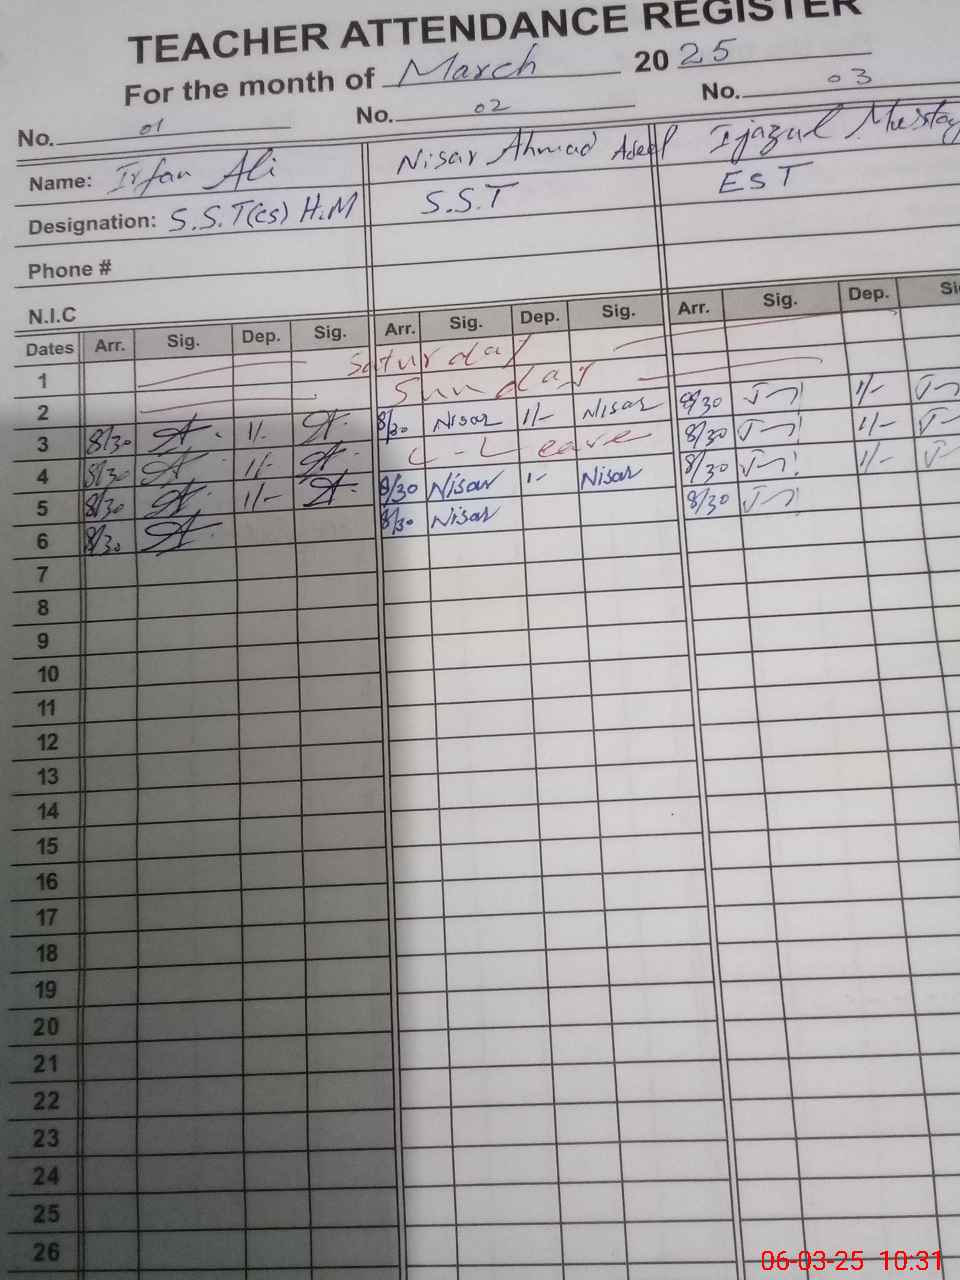 TEACHER ATTENDANCE REGISTER
For the month of March 2025
No. 01 No. 02 No. 03
Name: Irfan Ali Nisar Ahmad Adeel Ijazul
Designation: S.S.T(cs) H.M S.S.T EST
Phone #
N.I.C
Dates Arr. Sig. Dep. Sig. Arr. Sig. Dep. Sig. Arr. Sig. Dep.
1 Saturday
2 Sunday
3 8/30 1/- 8/30 Nisar 1/- Nisar 8/30 1/-
4 8/30 1/- C-Leave 8/30 1/-
5 8/30 1/- 8/30 Nisar 1- Nisar 8/30 1/-
6 8/30 8/30 Nisar 8/30
7
8
9
10
11
12
13
14
15
16
17
18
19
20
21
22
23
24
25
26
06-03-25 10:31